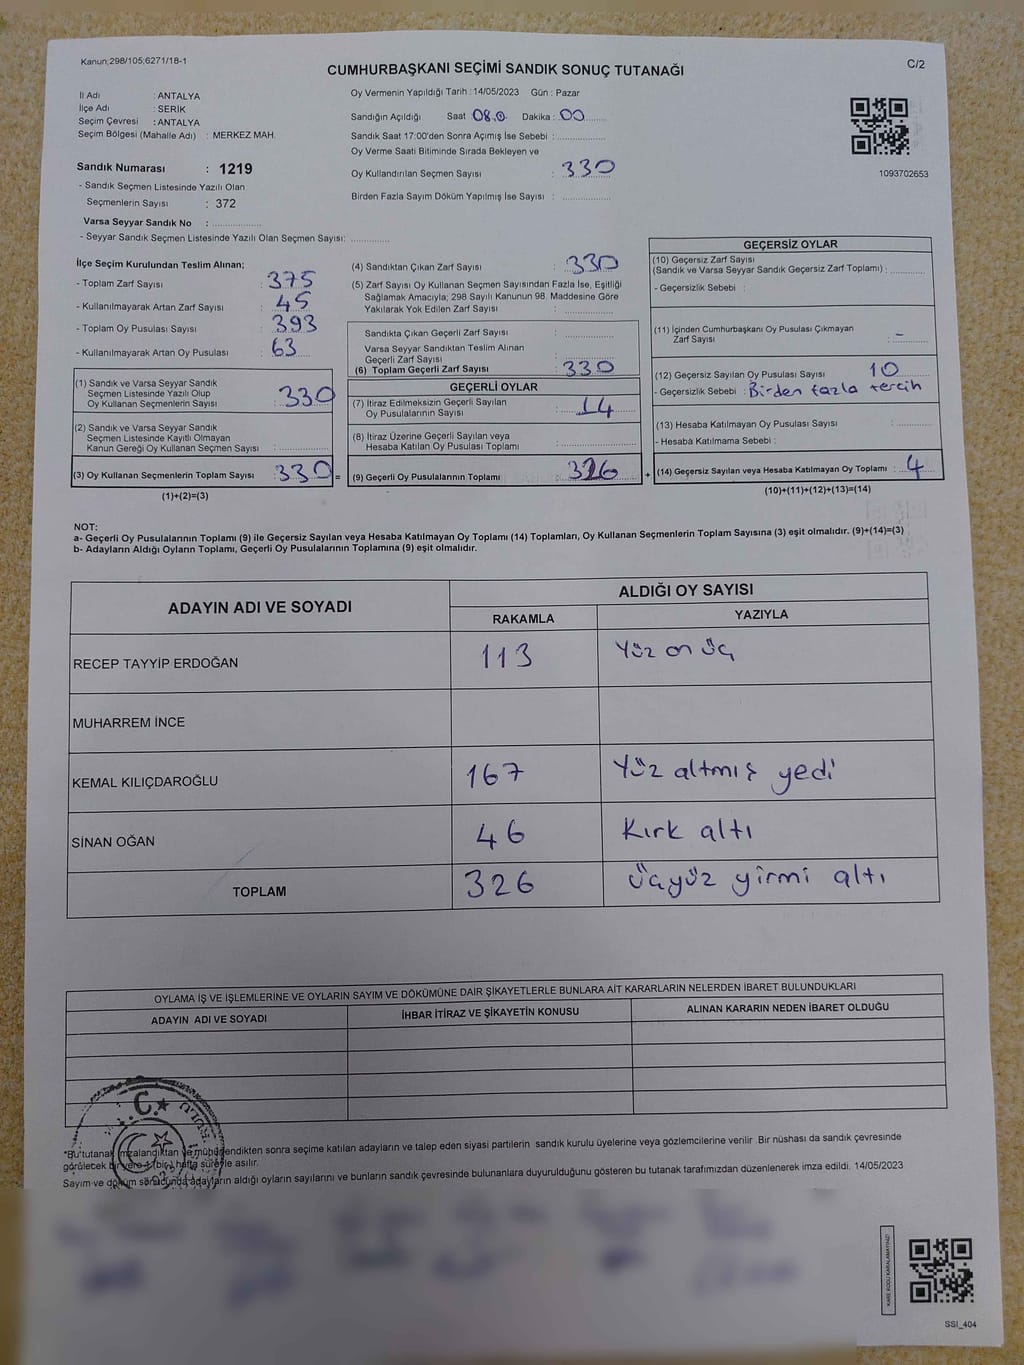 Kanun;298/105;6271/18-1
C/2
CUMHURBAŞKANI SEÇİMİ SANDIK SONUÇ TUTANAĞI
İl Adı : ANTALYA
İlçe Adı : SERİK
Seçim Çevresi : ANTALYA
Seçim Bölgesi (Mahalle Adı) : MERKEZ MAH.
Oy Vermenin Yapıldığı Tarih : 14/05/2023 Gün : Pazar
Sandığın Açıldığı Saat 08.0 Dakika : 00
Sandık Saat 17:00'den Sonra Açımış İse Sebebi :
Oy Verme Saati Bitiminde Sırada Bekleyen ve
Oy Kullandırılan Seçmen Sayısı : 330
Birden Fazla Sayım Döküm Yapılmış İse Sayısı :
1093702653
Sandık Numarası : 1219
- Sandık Seçmen Listesinde Yazılı Olan
Seçmenlerin Sayısı : 372
Varsa Seyyar Sandık No :
- Seyyar Sandık Seçmen Listesinde Yazılı Olan Seçmen Sayısı:
İlçe Seçim Kurulundan Teslim Alınan;
- Toplam Zarf Sayısı : 375
- Kullanılmayarak Artan Zarf Sayısı : 45
- Toplam Oy Pusulası Sayısı : 393
- Kullanılmayarak Artan Oy Pusulası : 63
(1) Sandık ve Varsa Seyyar Sandık
Seçmen Listesinde Yazılı Olup
Oy Kullanan Seçmenlerin Sayısı : 330
(2) Sandık ve Varsa Seyyar Sandık
Seçmen Listesinde Kayıtlı Olmayan
Kanun Gereği Oy Kullanan Seçmen Sayısı :
(3) Oy Kullanan Seçmenlerin Toplam Sayısı : 330 =
(1)+(2)=(3)
(4) Sandıktan Çıkan Zarf Sayısı : 330
(5) Zarf Sayısı Oy Kullanan Seçmen Sayısından Fazla İse, Eşitliği
Sağlamak Amacıyla; 298 Sayılı Kanunun 98. Maddesine Göre
Yakılarak Yok Edilen Zarf Sayısı :
Sandıkta Çıkan Geçerli Zarf Sayısı :
Varsa Seyyar Sandıktan Teslim Alınan
Geçerli Zarf Sayısı :
(6) Toplam Geçerli Zarf Sayısı : 330
GEÇERLİ OYLAR
(7) İtiraz Edilmeksizin Geçerli Sayılan
Oy Pusulalarının Sayısı : 14
(8) İtiraz Üzerine Geçerli Sayılan veya
Hesaba Katılan Oy Pusulası Toplamı :
(9) Geçerli Oy Pusulalarının Toplamı : 326 +
GEÇERSİZ OYLAR
(10) Geçersiz Zarf Sayısı
(Sandık ve Varsa Seyyar Sandık Geçersiz Zarf Toplamı) :
- Geçersizlik Sebebi :
(11) İçinden Cumhurbaşkanı Oy Pusulası Çıkmayan
Zarf Sayısı : -
(12) Geçersiz Sayılan Oy Pusulası Sayısı : 10
- Geçersizlik Sebebi : Birden fazla tercih
(13) Hesaba Katılmayan Oy Pusulası Sayısı :
- Hesaba Katılmama Sebebi :
(14) Geçersiz Sayılan veya Hesaba Katılmayan Oy Toplamı : 4
(10)+(11)+(12)+(13)=(14)
NOT:
a- Geçerli Oy Pusulalarının Toplamı (9) ile Geçersiz Sayılan veya Hesaba Katılmayan Oy Toplamı (14) Toplamları, Oy Kullanan Seçmenlerin Toplam Sayısına (3) eşit olmalıdır. (9)+(14)=(3)
b- Adayların Aldığı Oyların Toplamı, Geçerli Oy Pusulalarının Toplamına (9) eşit olmalıdır.
ADAYIN ADI VE SOYADI
ALDIĞI OY SAYISI
RAKAMLA YAZIYLA
RECEP TAYYİP ERDOĞAN 113 Yüz on üç
MUHARREM İNCE
KEMAL KILIÇDAROĞLU 167 Yüz altmış yedi
SİNAN OĞAN 46 Kırk altı
TOPLAM 326 Üçyüz yirmi altı
OYLAMA İŞ VE İŞLEMLERİNE VE OYLARIN SAYIM VE DÖKÜMÜNE DAİR ŞİKAYETLERLE BUNLARA AİT KARARLARIN NELERDEN İBARET BULUNDUKLARI
ADAYIN ADI VE SOYADI İHBAR İTİRAZ VE ŞİKAYETİN KONUSU ALINAN KARARIN NEDEN İBARET OLDUĞU
T.C.
*Bu tutanak imzalandıktan ve mühürlendikten sonra seçime katılan adayların ve talep eden siyasi partilerin sandık kurulu üyelerine veya gözlemcilerine verilir. Bir nüshası da sandık çevresinde
görülecek bir yere 1 (bir) hafta süreyle asılır.
Sayım ve döküm sonucunda adayların aldığı oyların sayılarını ve bunların sandık çevresinde bulunanlara duyurulduğunu gösteren bu tutanak tarafımızdan düzenlenerek imza edildi. 14/05/2023
KARE KODU KARALAMAYINIZ!
SSI_404